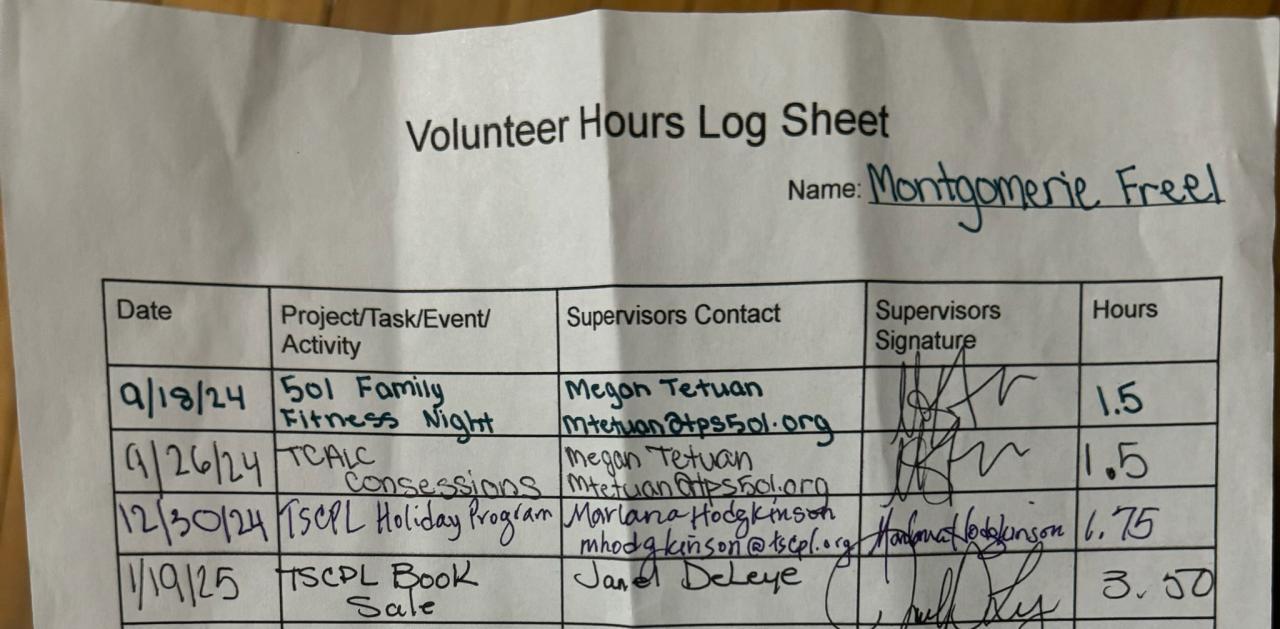 Volunteer Hours Log Sheet
Name: Montgomerie Freel
Date
Project/Task/Event/
Activity
Supervisors Contact
Supervisors
Signature
Hours
9/18/24
501 Family
Fitness Night
Megan Tetuan
mtetuan@tps501.org
1.5
9/26/24
TCALC
Consessions
Megan Tetuan
mtetuan@tps501.org
1.5
12/30/24
TSCPL Holiday Program
Marlana Hodgkinson
mhodgkinson@tscpl.org
Hodgkinson
1.75
1/19/25
TSCPL Book
Sale
DeLeye
3.50